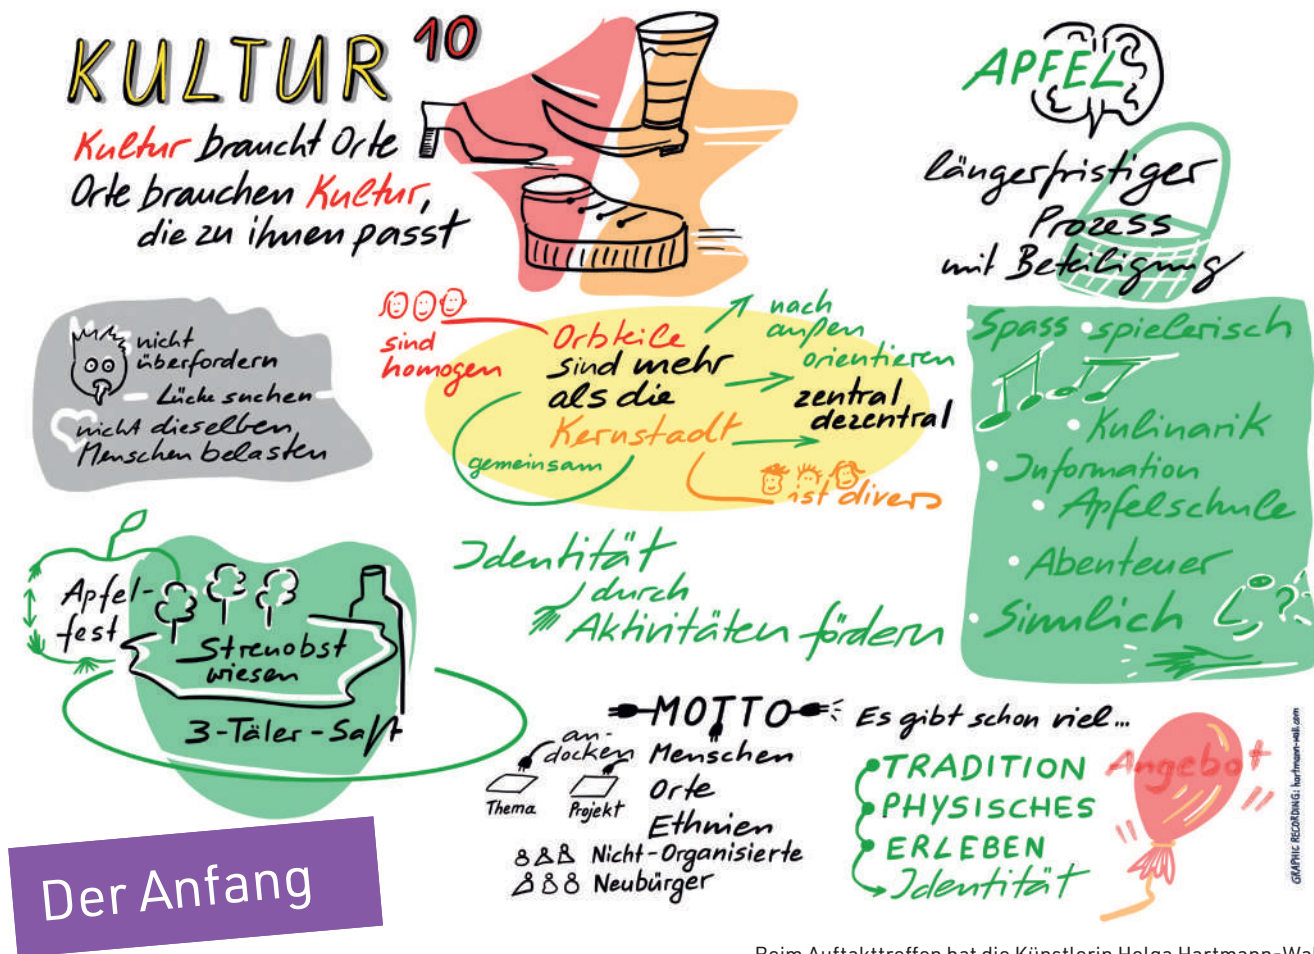 KULTUR 10
Kultur braucht Orte
Orte brauchen Kultur,
die zu ihnen passt
APFEL
längerfristiger
Prozess
mit Beteiligung
nicht
überfordern
Lücke suchen
nicht dieselben
Menschen belasten
sind
homogen
Ortsteile
sind mehr
als die
Kernstadt
gemeinsam
nach
außen
orientieren
zentral
dezentral
ist divers
Spass • spielerisch
• Kulinarik
• Information
• Apfelschule
• Abenteuer
• Sinnlich
?
Apfel-
fest
Streuobst
wiesen
3-Täler-Saft
Identität
durch
Aktivitäten fördern
MOTTO
an-
docken
Thema
Projekt
Menschen
Orte
Ethnien
Nicht-Organisierte
Neubürger
Es gibt schon viel...
TRADITION
PHYSISCHES
ERLEBEN
Identität
Angebot
GRAPHIC RECORDING: hartmann-wall.com
Der Anfang
Beim Auftakttreffen hat die Künstlerin Helga Hartmann-Wal